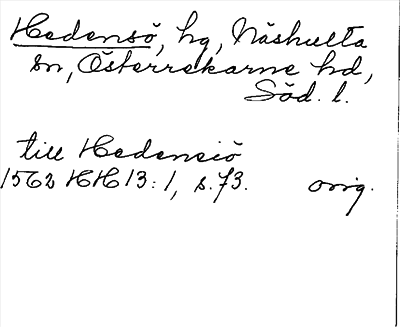 Hedensö, hg, Näshulta
sn, Österrekarne hd,
Söd. l.
till Hedensiö
1562 HH 13:1, s. 73. orig.